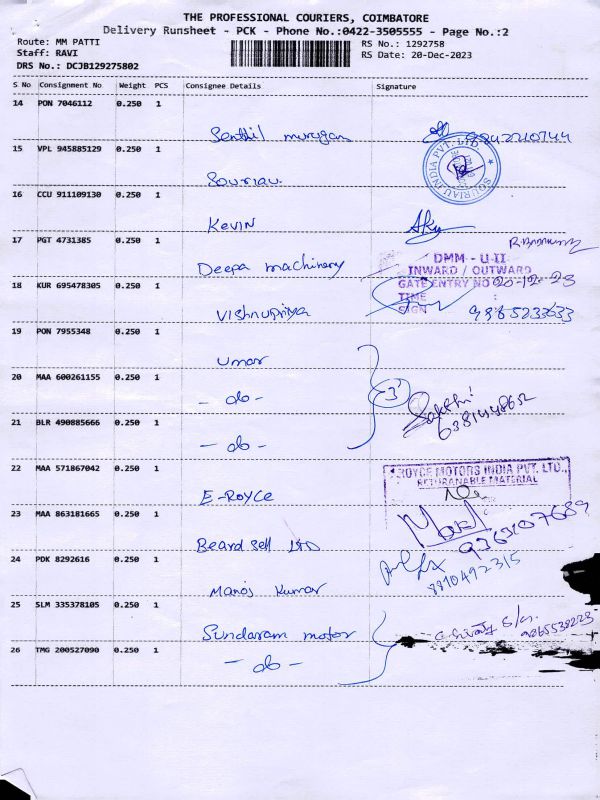 THE PROFESSIONAL COURIERS, COIMBATORE
Delivery Runsheet - PCK - Phone No.:0422-3505555 - Page No.:2
Route: MM PATTI
Staff: RAVI
DRS No.: DCJB129275802
RS No.: 1292758
RS Date: 20-Dec-2023
S No Consignment No Weight PCS Consignee Details Signature
14 PON 7046112 0.250 1
Senthil murugan
15 VPL 945885129 0.250 1
SOURIAU INDIA PVT. LTD.
Souriau
16 CCU 911109130 0.250 1
Kevin
17 PGT 4731385 0.250 1
Deepa machinery
DMM - U-II
INWARD / OUTWARD
GATE ENTRY NO 20-12-23
TIME :
SIGN :
18 KUR 695478305 0.250 1
Vishnupriya 9865233633
19 PON 7955348 0.250 1
Umar
20 MAA 600261155 0.250 1
- do - 3 Sakthi
6381448652
21 BLR 490885666 0.250 1
- do -
22 MAA 571867042 0.250 1
E-Royce
ROYCE MOTORS INDIA PVT. LTD.,
RETURANABLE MATERIAL
23 MAA 863181665 0.250 1
Beardsell LTD 9363107689
24 PDK 8292616 0.250 1
Manoj Kumar 8810492315
25 SLM 335378105 0.250 1
Sundaram motor
26 TMG 200527090 0.250 1
- do -